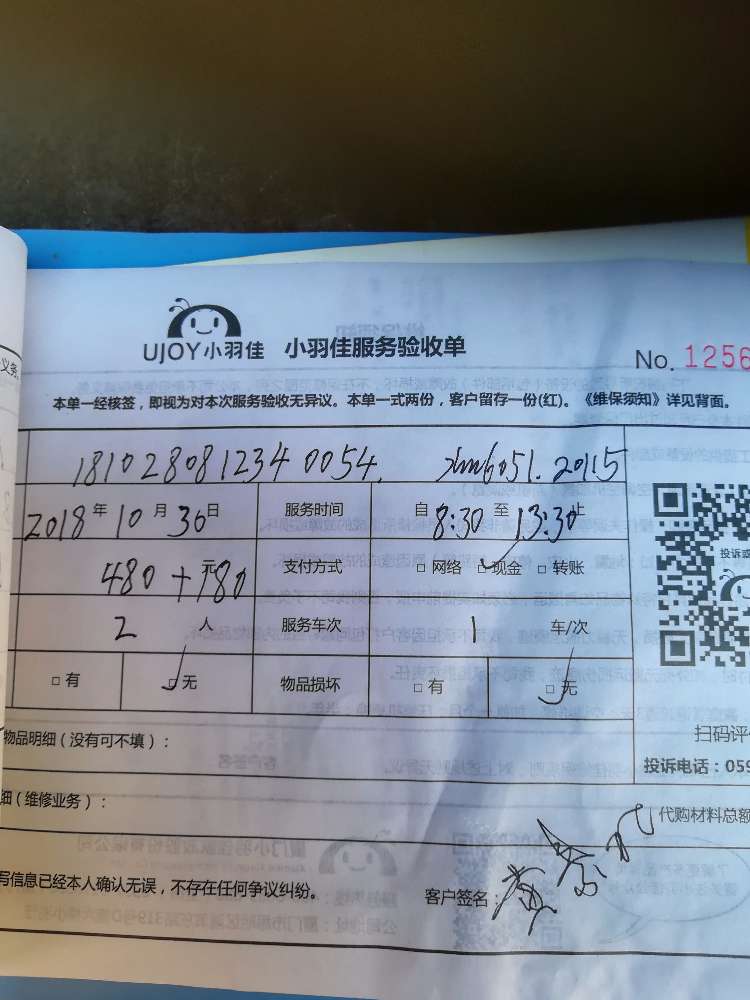 UJOY小羽佳 小羽佳服务验收单
No. 1256
本单一经核签，即视为对本次服务验收无异议。本单一式两份，客户留存一份(红)。《维保须知》详见背面。
181028081234 0054. xm6051.20115
2018年10月30日 服务时间 自8:30至13:30止
480+180 元 支付方式 □网络 ☑现金 □转账
2 人 服务车次 1 车/次
□有 ☑无 物品损坏 □有 ☑无
投诉或
扫码评
物品明细（没有可不填）：
投诉电话：059
细（维修业务）：
代购材料总额
写信息已经本人确认无误，不存在任何争议纠纷。
客户签名：